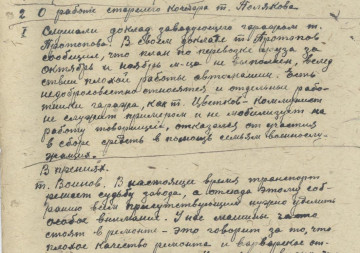 2 О работе старшего контора т. Полякова.
I Слушали доклад заведующего гаражом т.
Протопопова. В своем докладе т. Протопопов
сообщил, что план по перевозке груза за
октябрь и ноябрь м-ца не выполнен, вслед
ствии плохой работы автомашин. Есть
недобросовестно относятся и отдельные рабо-
тники гаража, как т. Цветков - коммунист
не служит примером и не мобилизует на
работу товарищей, отказался от участия
в сборе средств в помощь семьям военнослу-
жащих.
В прениях.
т. Воинов. В настоящее время транспорт
решает судьбу завода, а отсюда этому соб-
ранию всем присутствующим нужно уделить
особое внимание. У нас машины часто
стоят в ремонте - это говорит за то, что
плохое качество ремонта и варварское от-